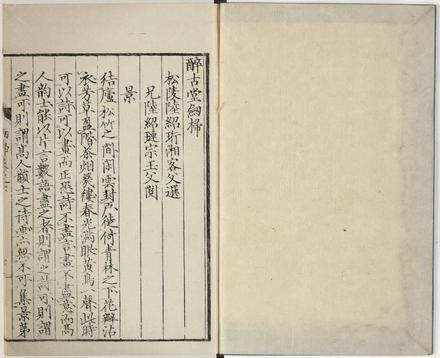 醉古堂劒掃
松陵陸紹珩湘客父選
兄陸紹璉宗玉父閱
景
結廬松竹之間閑雲封戶徙倚青林之下花瓣沾
衣芳草盈階茶烟幾縷春光滿眼黃鳥一聲此時
可以詩可以畫而正恐詩不盡言畫不盡意而高
人韵士能以片言數語盡之者則謂之詩可則謂
之畫可則謂高人韻士之詩畫亦無不可集景第